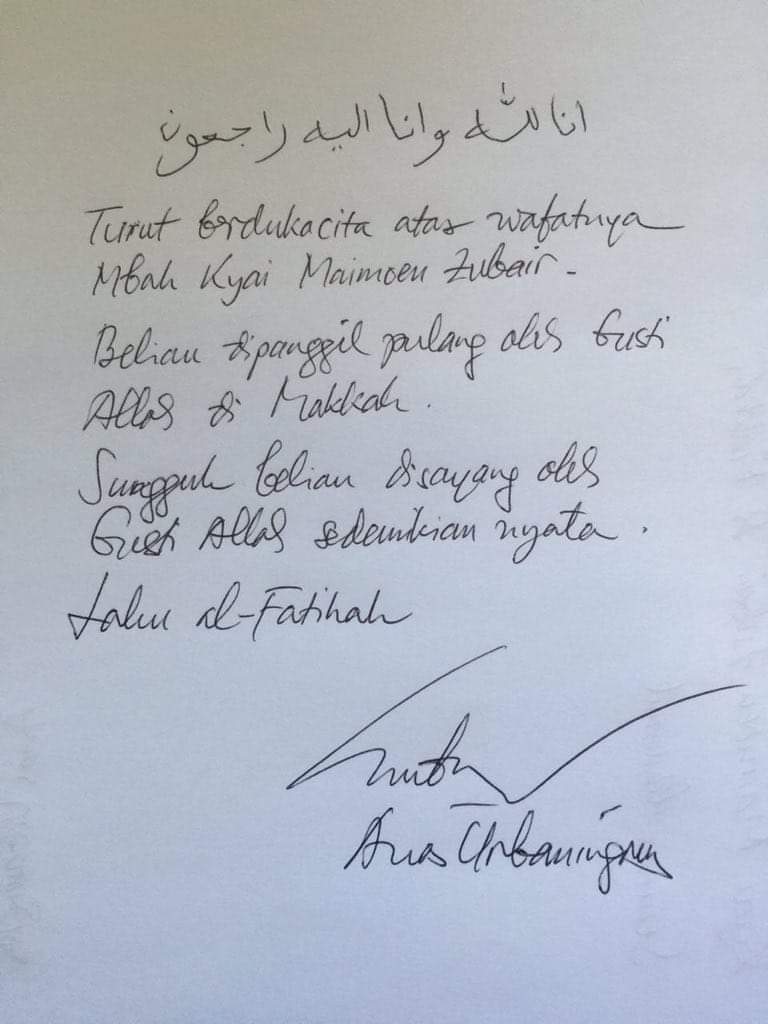 انا لله وانا اليه راجعون
Turut berdukacita atas wafatnya
Mbah Kyai Maimoen Zubair -
Beliau dipanggil pulang oleh Gusti
Allah di Makkah.
Sungguh beliau disayang oleh
Gusti Allah sedemikian nyata.
Lahu al-Fatihah
Anas Urbaningrum